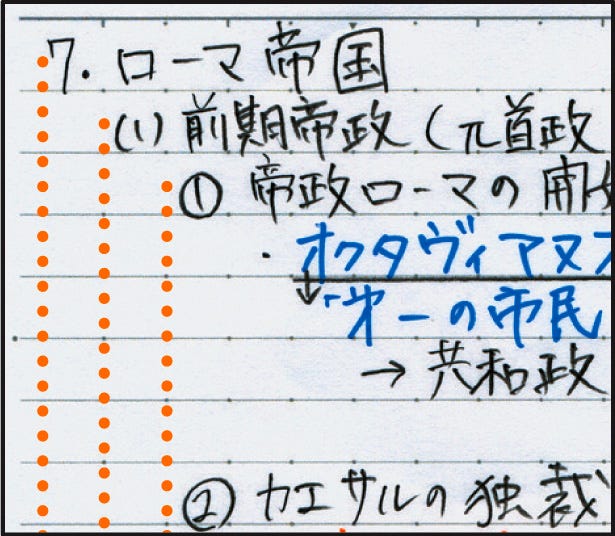 7. ローマ帝国
(1) 前期帝政 (元首政
① 帝政ローマの開
・オクタヴィアヌス
↓「第一の市民
→ 共和政
② カエサルの独裁